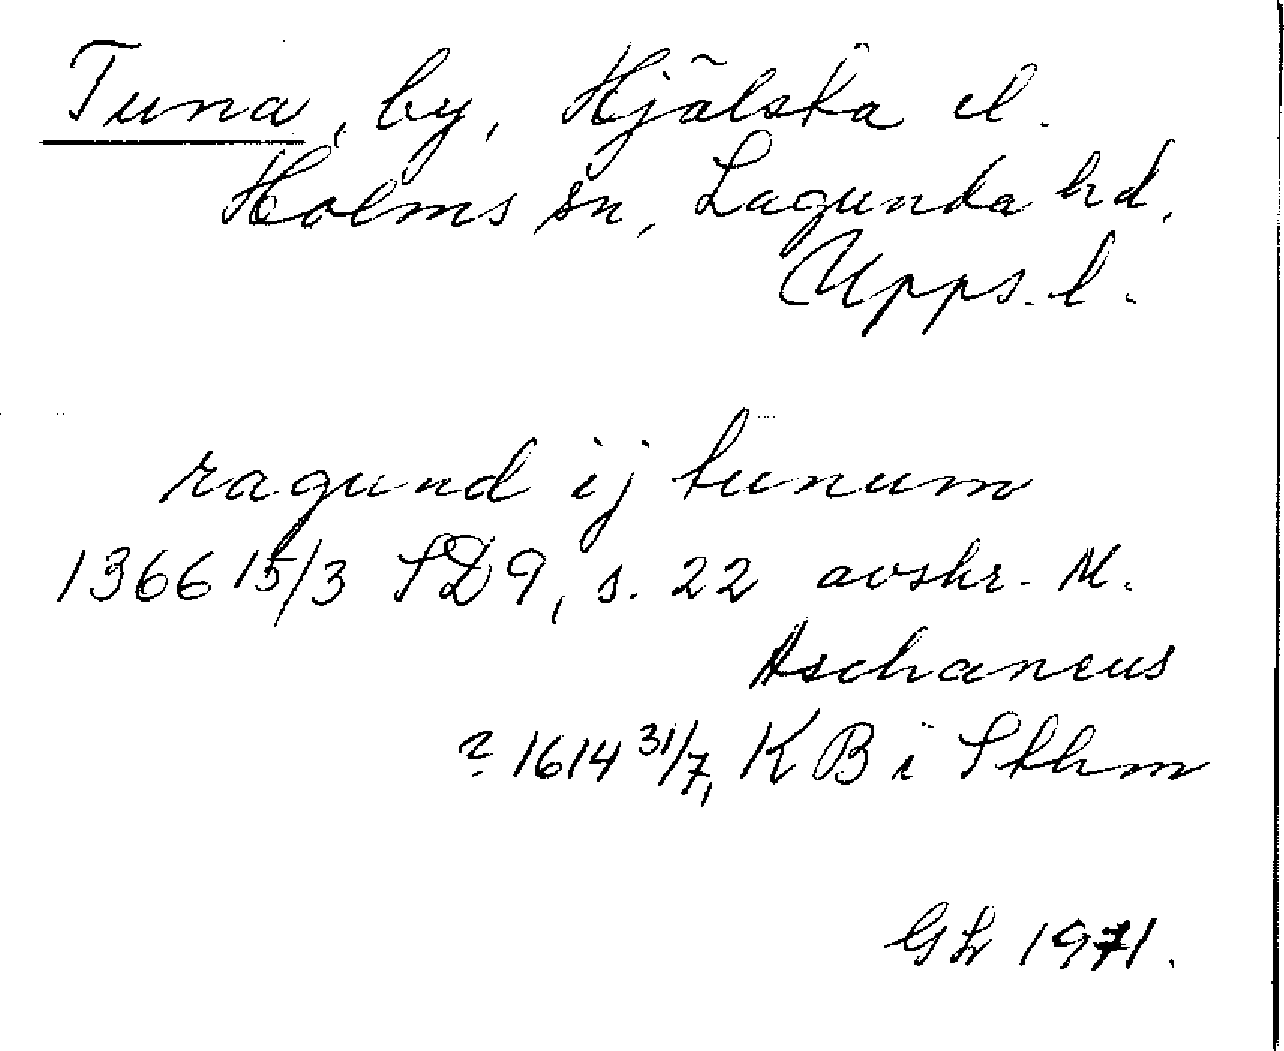 Tuna, by, Hjälsta el.
Holms sn, Lagunda hd,
Upps. l.
ragund ij tunum
1366 15/3 SD 9, s. 22 avskr. M.
Aschaneus
? 1614 31/7, KB i Sthm
Gh 1971.